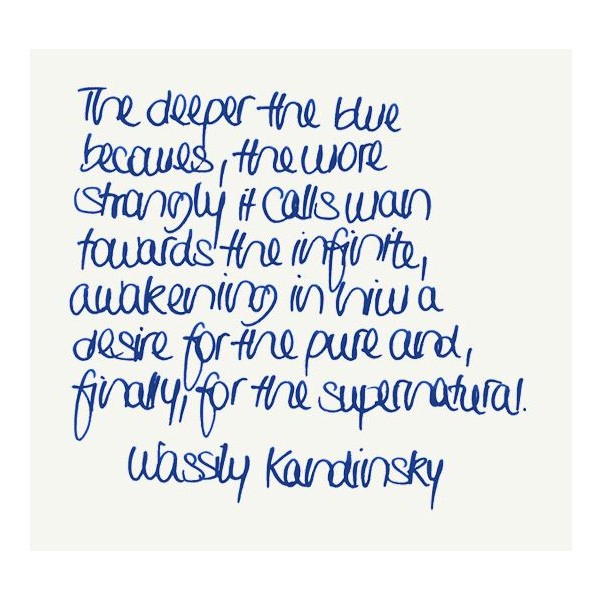 The deeper the blue
becomes, the more
strongly it calls man
towards the infinite,
awakening in him a
desire for the pure and,
finally, for the supernatural.
Wassily Kandinsky